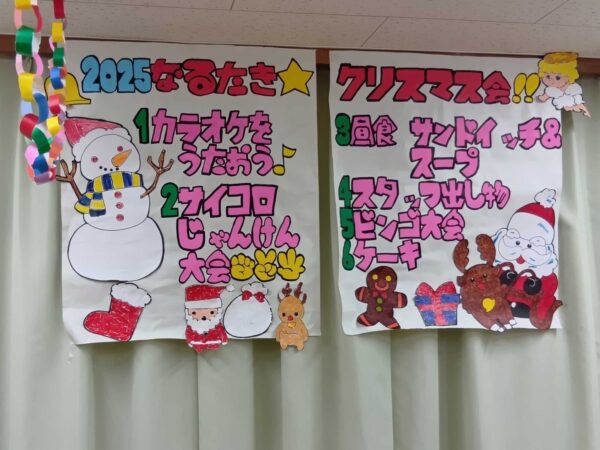 2025なるたき☆
1カラオケを
うたおう♪
2サイコロ
じゃんけん
大会
クリスマス会!!
3昼食 サンドイッチ&
スープ
4スタッフ出し物
5ビンゴ大会
6ケーキ